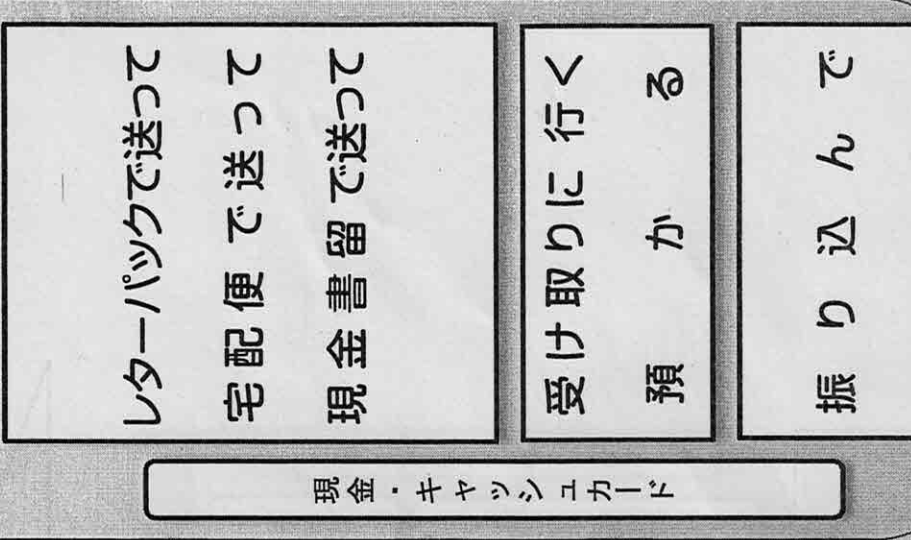 現金・キャッシュカード
レターパックで送って
宅配便で送って
現金書留で送って
受け取りに行く
預かる
振り込んで